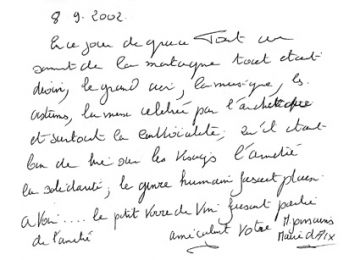 8 9. 2002.
Ence jour de grace Tout au
sommet de la montagne tout était
divin, le grand air, la musique, les
la messe célébrée par l'
et surtout la convivialité, qu'il était
bon de lire sur les visages l'amitié
la solidarité; le genre humain faisait plaisir
a voir.... le petit verre de vin faisait partie
de l'amitié amicalement votre
Mairie d'Aix